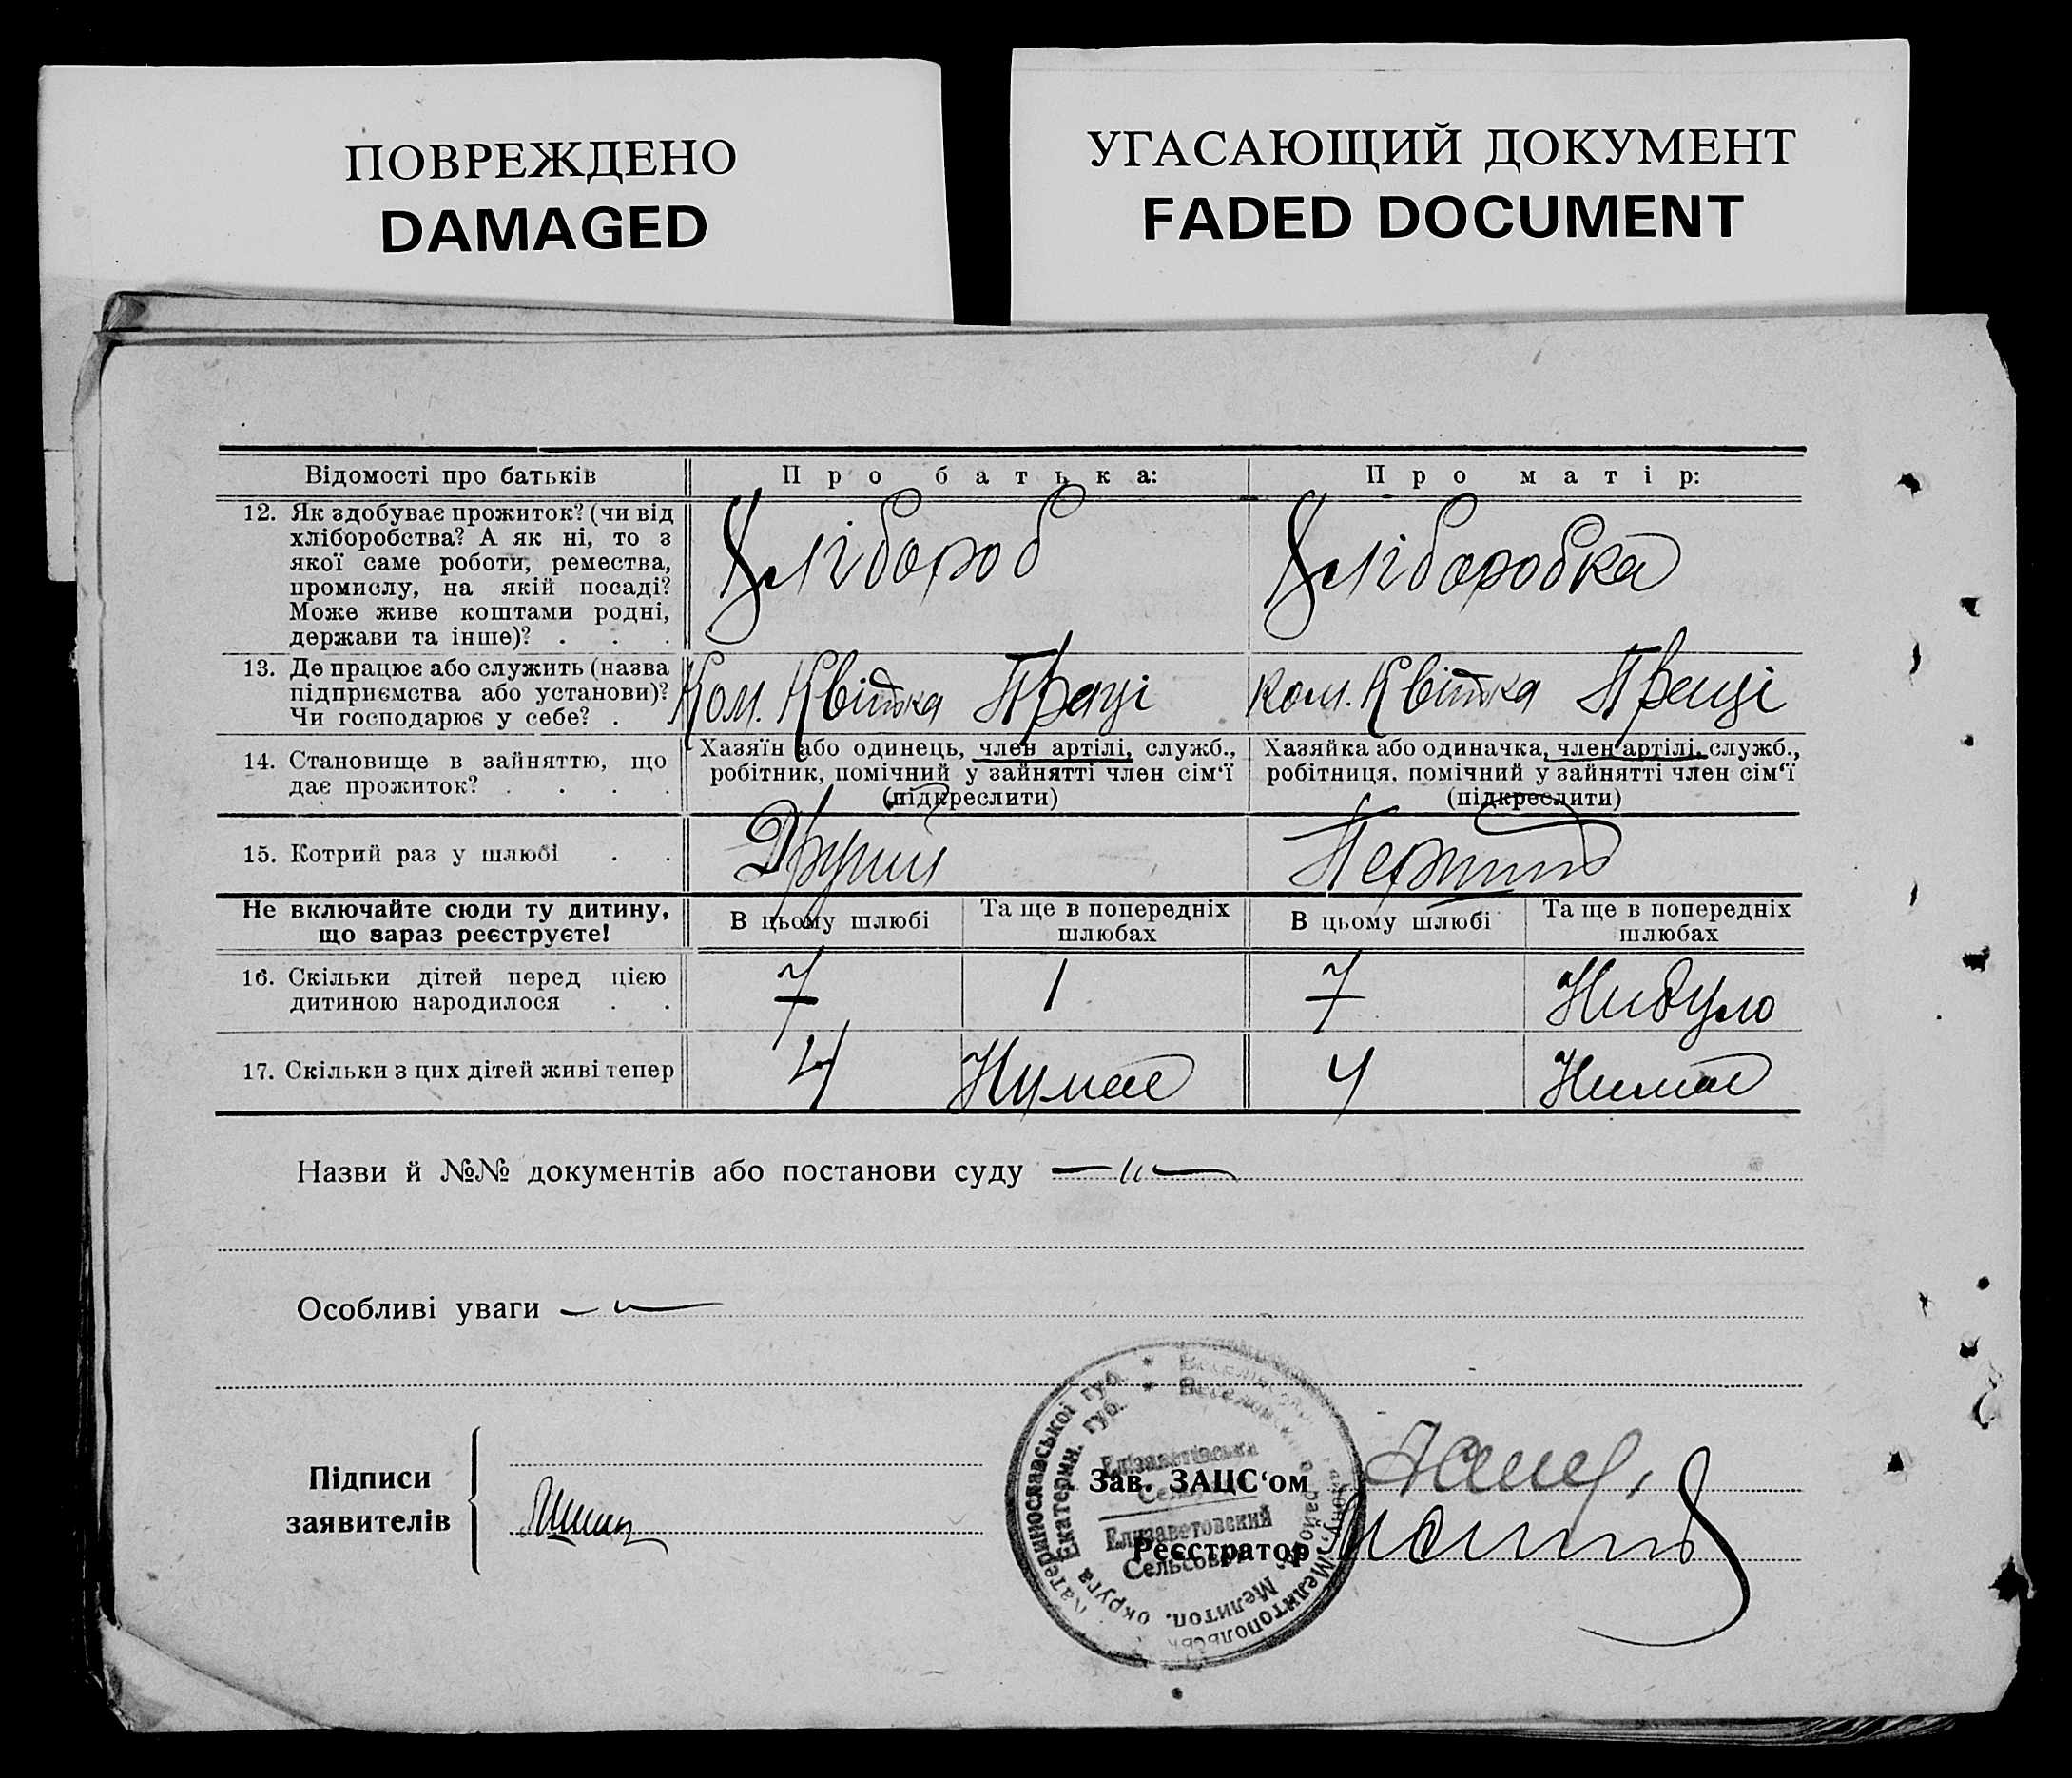 ПОВРЕЖДЕНО
DAMAGED
УГАСАЮЩИЙ ДОКУМЕНТ
FADED DOCUMENT
Відомості про батьків
Про батька:
Про матір:
12. Як здобуває прожиток? (чи від
хліборобства? А як ні, то з
якої саме роботи, ремества,
промислу, на якій посаді?
Може живе коштами родні,
держави та інше)? . . .
Хлібороб
Хліборобка
13. Де працює або служить (назва
підприємства або установи)?
Чи господарює у себе? .
Ком. Квітка Праці
Ком. Квітка Праці
14. Становище в зайняттю, що
дає прожиток? . . . .
Хазяїн або одинець, член артілі, служб.,
робітник, помічний у зайнятті член сім‘ї
(підкреслити)
Хазяйка або одиначка, член артілі, служб.,
робітниця, помічний у зайнятті член сім‘ї
(підкреслити)
15. Котрий раз у шлюбі . .
Другий
Не включайте сюди ту дитину,
що зараз реєструєте!
В цьому шлюбі
Та ще в попередніх
шлюбах
В цьому шлюбі
Та ще в попередніх
шлюбах
16. Скільки дітей перед цією
дитиною народилося . .
7
1
7
Нибуло
17. Скільки з цих дітей живі тепер
4
Нумає
4
Нимає
Назви й №№ документів або постанови суду —〃—
Особливі уваги —〃—
Підписи
заявителів
Зав. ЗАЦС‘ом
Реєстратор
Катеринославської губ.
округа Екатерин. губ.
Елизаветовский
Сельсовет
Мелитоп.
Мелитопольськ